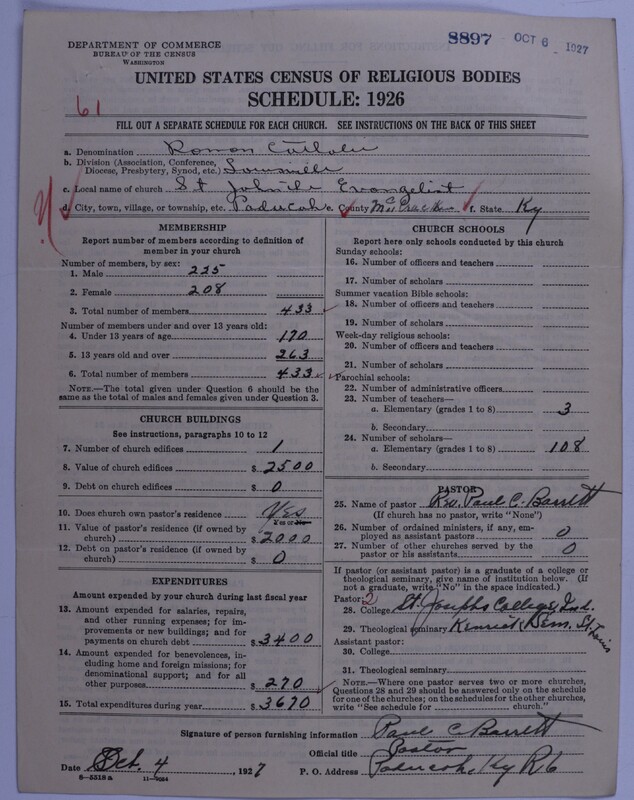 8897 OCT 6 1927
DEPARTMENT OF COMMERCE
BUREAU OF THE CENSUS
WASHINGTON
UNITED STATES CENSUS OF RELIGIOUS BODIES
SCHEDULE: 1926
61
FILL OUT A SEPARATE SCHEDULE FOR EACH CHURCH. SEE INSTRUCTIONS ON THE BACK OF THIS SHEET
a. Denomination Roman Catholic
b. Division (Association, Conference,
Diocese, Presbytery, Synod, etc.) Louisville
c. Local name of church St John the Evangelist
d. City, town, village, or township, etc. Paducah e. County McCracken f. State Ky
MEMBERSHIP
Report number of members according to definition of
member in your church
Number of members, by sex:
1. Male 225
2. Female 208
3. Total number of members 433
Number of members under and over 13 years old:
4. Under 13 years of age 170
5. 13 years old and over 263
6. Total number of members 433
NOTE.—The total given under Question 6 should be the
same as the total of males and females given under Question 3.
CHURCH BUILDINGS
See instructions, paragraphs 10 to 12
7. Number of church edifices 1
8. Value of church edifices $ 2500
9. Debt on church edifices $ 0
10. Does church own pastor's residence Yes
Yes or No
11. Value of pastor's residence (if owned by
church) $ 2000
12. Debt on pastor's residence (if owned by
church) $ 0
EXPENDITURES
Amount expended by your church during last fiscal year
13. Amount expended for salaries, repairs,
and other running expenses; for im-
provements or new buildings; and for
payments on church debt $ 3400
14. Amount expended for benevolences, in-
cluding home and foreign missions; for
denominational support; and for all
other purposes $ 270
15. Total expenditures during year $ 3670
CHURCH SCHOOLS
Report here only schools conducted by this church
Sunday schools:
16. Number of officers and teachers
17. Number of scholars
Summer vacation Bible schools:
18. Number of officers and teachers
19. Number of scholars
Week-day religious schools:
20. Number of officers and teachers
21. Number of scholars
Parochial schools:
22. Number of administrative officers
23. Number of teachers—
a. Elementary (grades 1 to 8) 3
b. Secondary
24. Number of scholars—
a. Elementary (grades 1 to 8) 108
b. Secondary
PASTOR
25. Name of pastor Rev. Paul C. Barrett
(If church has no pastor, write "None")
26. Number of ordained ministers, if any, em-
ployed as assistant pastors 0
27. Number of other churches served by the
pastor or his assistants 0
If pastor (or assistant pastor) is a graduate of a college or
theological seminary, give name of institution below. (If
not a graduate, write "No" in the space indicated.)
Pastor: 2
28. College St. Josephs College, Ind.
29. Theological seminary Kenrick Sem. St. Louis
Assistant pastor:
30. College
31. Theological seminary
NOTE.—Where one pastor serves two or more churches,
Questions 28 and 29 should be answered only on the schedule
for one of the churches; on the schedules for the other churches,
write "See schedule for church."
Signature of person furnishing information Paul C Barrett
Official title Pastor
Date Oct. 4, 1927 P. O. Address Paducah, Ky R 6
8—5318 a 11—9024